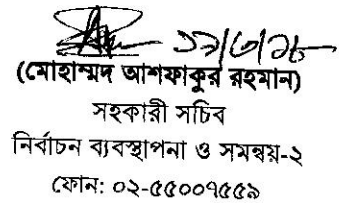 ১৯/৩/১৮
(মোহাম্মদ আশফাকুর রহমান)
সহকারী সচিব
নির্বাচন ব্যবস্থাপনা ও সমন্বয়-২
ফোন: ০২-৫৫০০৭৫৫৯